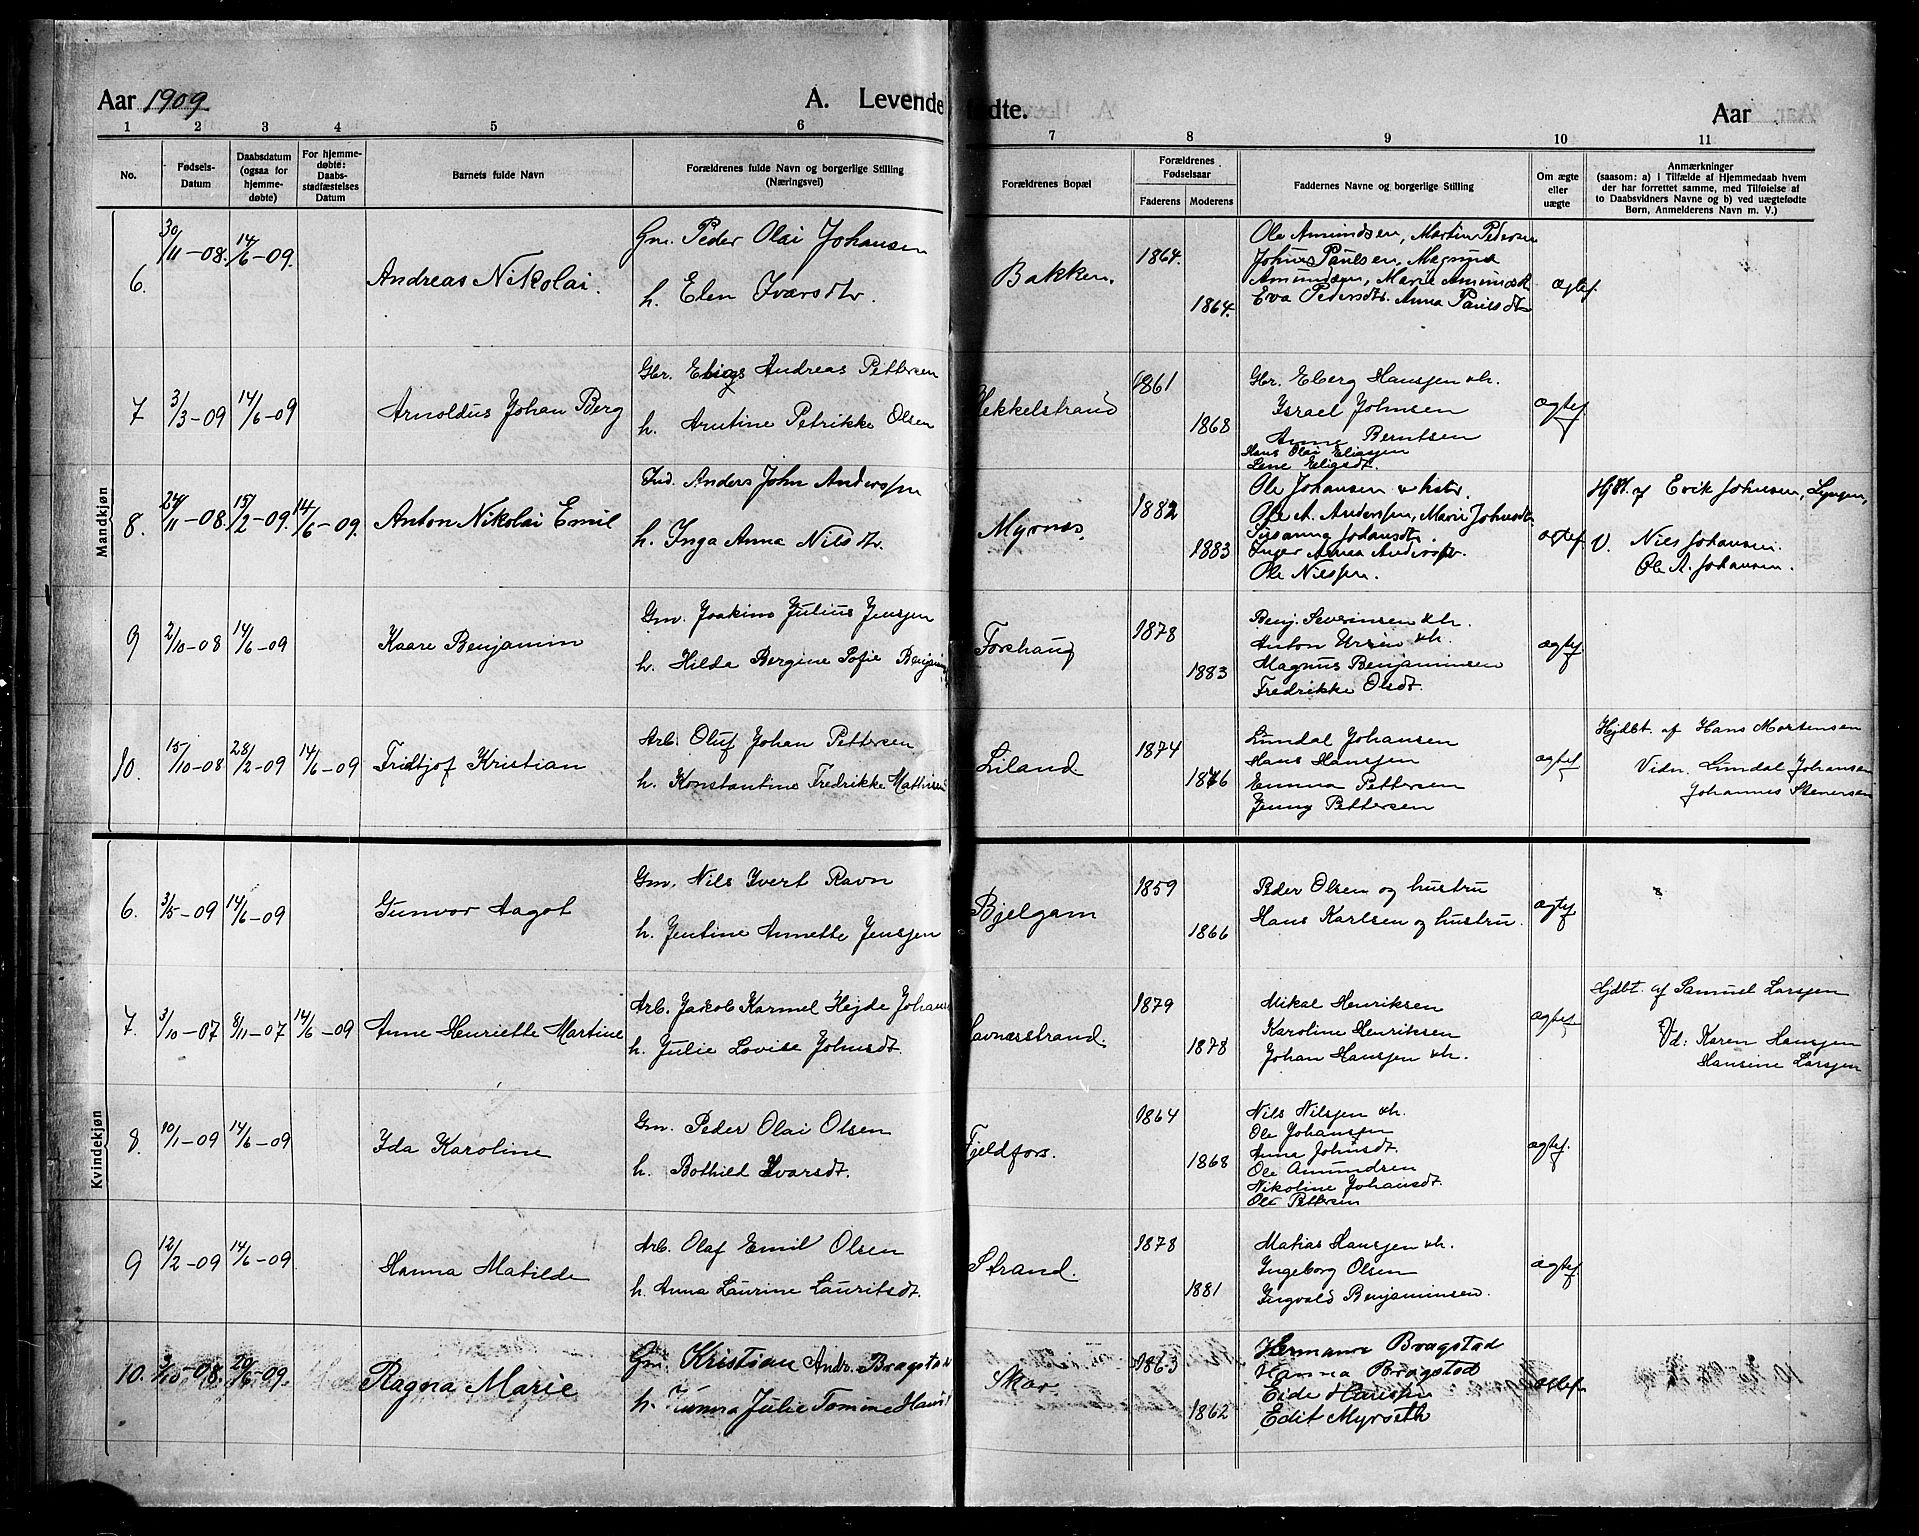 Aar 1909 A. Levende fødte. Aar
1 2 3 4 5 6 7 8 9 10 11
No.
Fødsels-Datum
Daabsdatum (ogsaa for hjemme-døbte)
For hjemme-døbte: Daabs-stadfæstelses Datum
Barnets fulde Navn
Forældrenes fulde Navn og borgerlige Stilling (Næringsvei)
Forældrenes Bopæl
Forældrenes Fødselsaar
Faderens Moderens
Faddernes Navne og borgerlige Stilling
Om ægte eller uægte
Anmærkninger
(saasom: a) i Tilfælde af Hjemmedaab hvem
der har forrettet samme, med Tilføielse af
to Daabsvidners Navne og b) ved uægtefødte
Børn, Anmelderens Navn m. V.)
Mandkjøn
6. 30/11-08. 14/6-09. Andreas Nikolai.
Gm. Peder Olai Johansen
h. Elen Ivarsdtr.
Bakken. 1864. 1864.
Ole Amundsen, Martin Pedersen
Johns Paulsen, Magnus
Amundsen, Marie Amundsdt.
Eva Pedersdtr. Anna Paulsdtr
ægtef.
7 3/3-09 14/6-09 Arnoldus Johan Berg
Gbr. Elias Andreas Pettersen
h. Arntine Petrikke Olsen
Hekkelstrand 1861 1868
Gbr. Eberg Hansen &h.
Israel Johnsen
Anne Berntsen
Hans Olai Eliassen
Lene Eliasdt.
ægtef
8. 24/11-08. 15/2-09. 14/6-09. Anton Nikolai Emil
Ind. Anders John Anderssen
h. Inga Anna Nilsdtr.
Myrnes. 1882 1883
Ole Johansen & hstr.
Ole A. Anderssen, Marie Johnsdtr
Susanna Johansdtr.
Inger Anna
Ole Nilssen.
ægtef
Hjdt. af Erik Johnsen, Lyngen,
V. Nils Johansen.
Ole A. Johansen.
9 2/10-08 14/6-09 Kaare Benjamin
Gm. Joakim Julius Jensen
h. Hilda Bergine Sofie
Forshaug 1878 1883
Benj. Severinsen &h.
Anton Ursin &h.
Magnus Benjaminsen
Fredrikke Olsdt.
ægtef
10. 15/10-08 28/2-09 14/6-09 Fridtjof Kristian
Arb. Oluf Johan Pettersen
h. Konstantine Fredrikke Mathisen
Liland 1874 1876
Lindal Johansen
Hans Hansen
Emma Pettersen
Jenny Pettersen
ægtef
Hjdbt. af Hans Mortensen
Vidn. Lindal Johansen
Johannes Stenersen
Kvindekjøn
6. 3/5-09 14/6-09 Gunvor Aagot
Gm. Nils Ivert Ravn
h. Jentine Annette Jensen
Bjelgam 1859 1866
Peder Olsen og hustru
Hans Karlsen og hustru.
ægtef
7. 3/10-07 8/11-07 14/6-09 Anne Henriette Martine
Arb. Jakob Karmel Hejde
h. Julie Lovise Johnsdt.
Havnæsstrand. 1879 1878
Mikal Henriksen
Karoline Henriksen
Johan Hansen &h.
ægtef
Hjdbt. af Samuel Larsen
Vd: Karen Hansen
Hansine Larsen
8. 10/1-09 14/6-09 Ida Karoline
Gm. Peder Olai Olsen
h. Bothild Ivarsdt.
Fjeldfors. 1864 1868
Nils Nilsen &h.
Ole Johansen
Anna Johnsdt.
Ole Amundsen
Nikoline Johansdt.
Ole Pettersen
ægtef.
9 12/2-09 14/6-09 Hanna Matilde
Arb. Olaf Emil Olsen
h. Anna Laurine Lauritsdt.
Strand. 1878 1881
Matias Hansen &h.
Ingeborg Olsen
Ingvald Benjaminsen.
ægtef
10. 3/10-08. 20/6-09. Ragna Marie
Gm. Kristian Andr. Bragstad
h. Julie Tomine
Skar. 1863 1862
Hermann Bragstad
Hanna Bragstad
Eide
Edit Myrseth
ægtef.